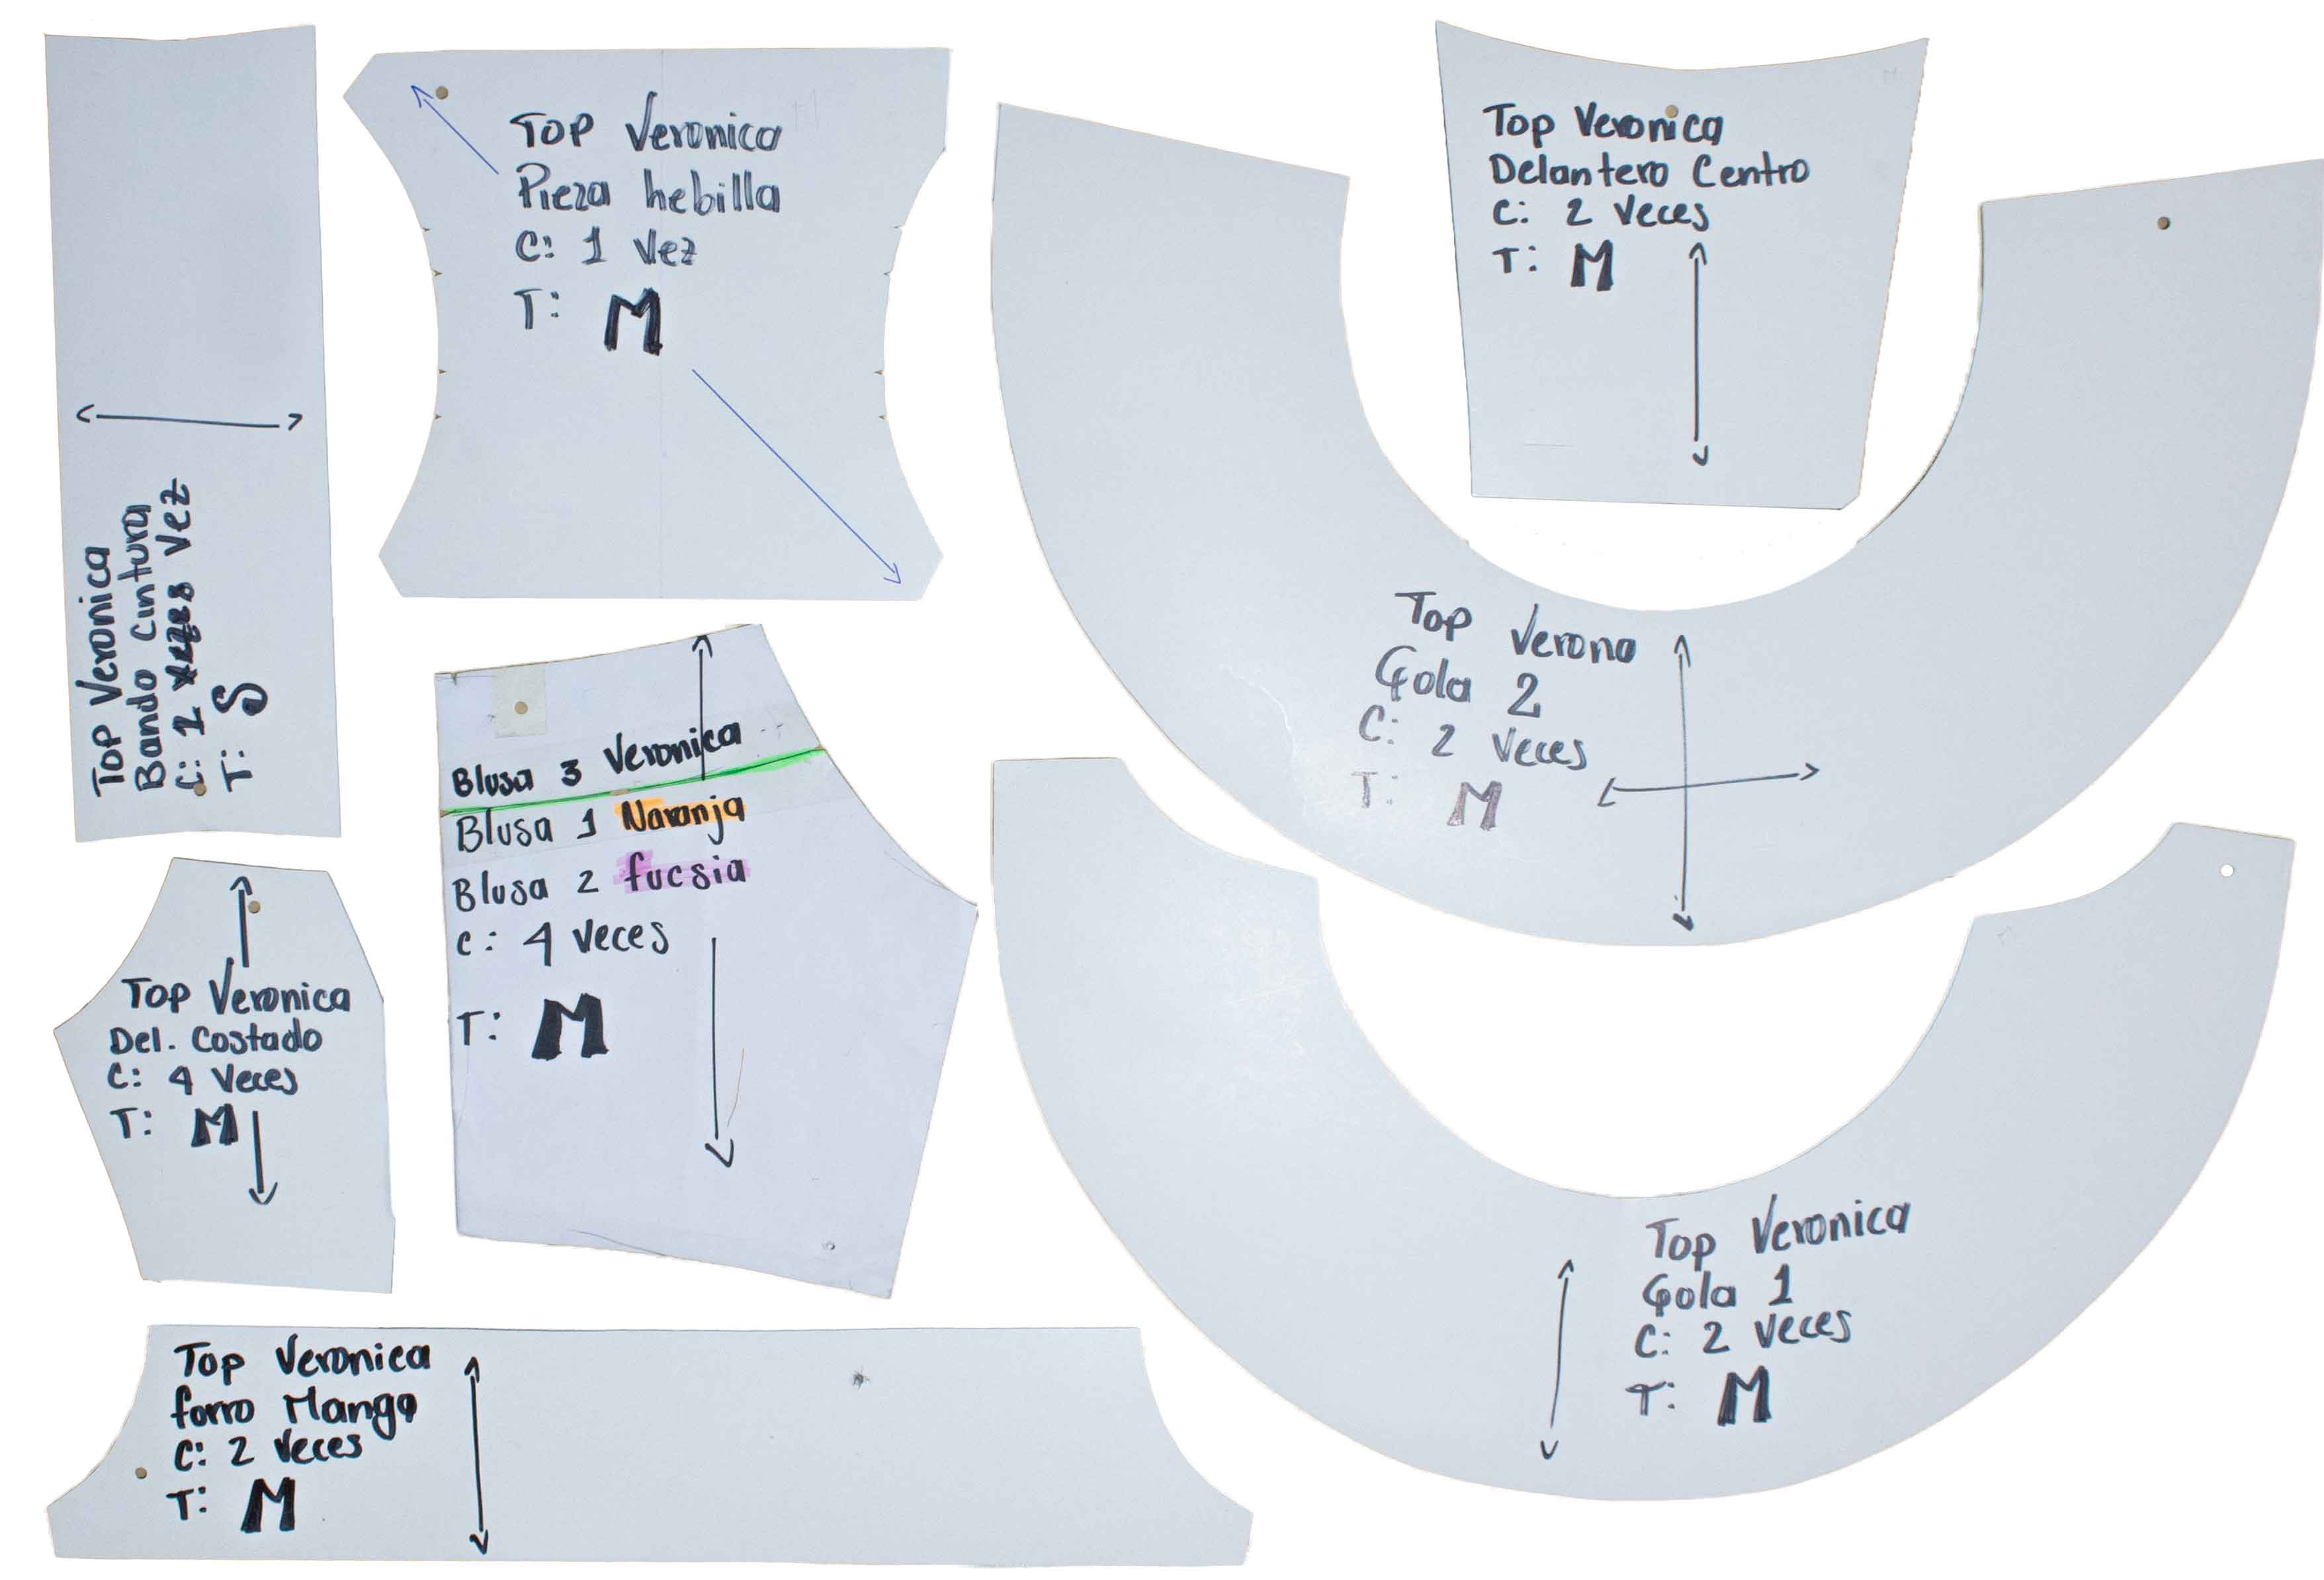 Top Veronica
Bando Cintura
C: 1 Vez
T: S
Top Veronica
Pieza hebilla
C: 1 Vez
T: M
Top Veronica
Delantero Centro
C: 2 Veces
T: M
Top Verona
Gola 2
C: 2 Veces
T: M
Blusa 3 Veronica
Blusa 1 Naranja
Blusa 2 fucsia
C: 4 Veces
T: M
Top Veronica
Del. Costado
C: 4 Veces
T: M
Top Veronica
Gola 1
C: 2 Veces
T: M
Top Veronica
forro Manga
C: 2 Veces
T: M